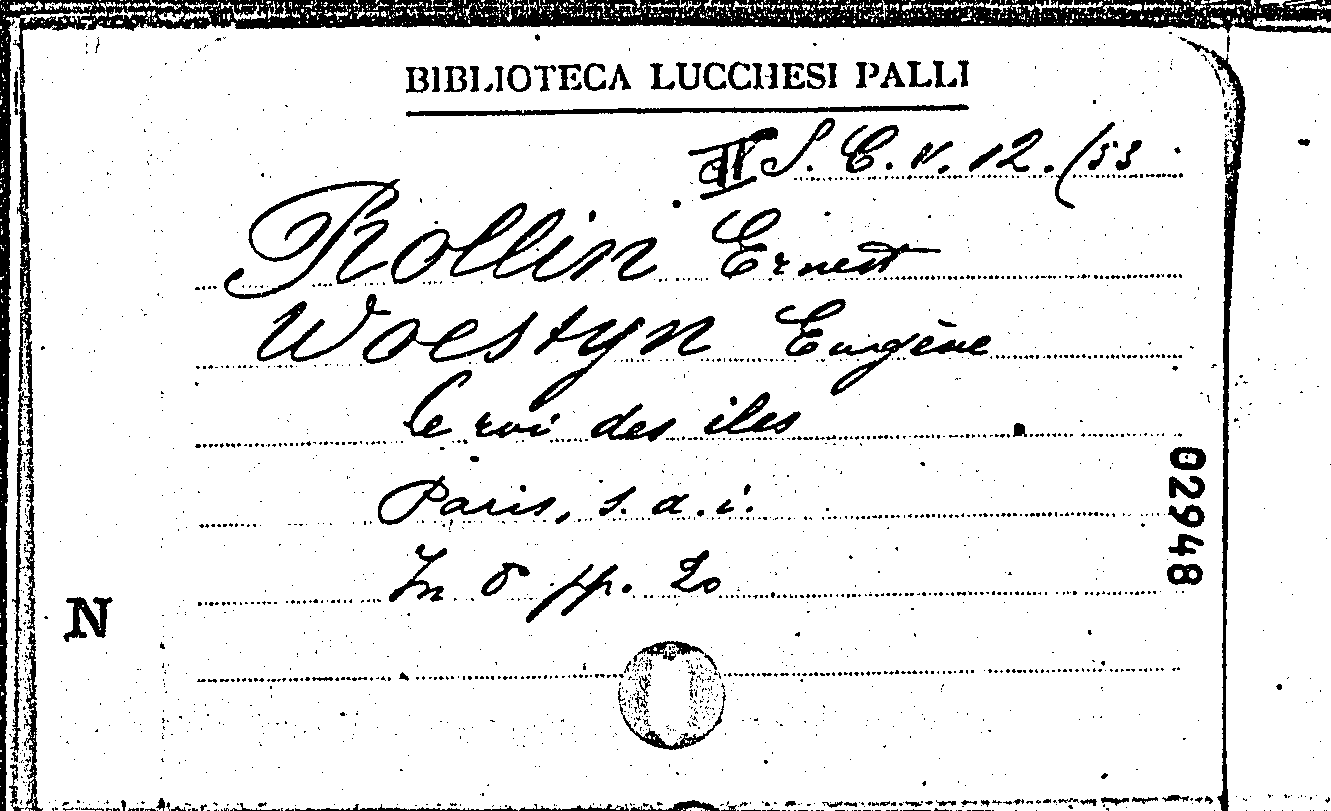 BIBLIOTECA LUCCHESI PALLI
S. C. V. 12. (53
Rollin Ernest
Woestyn Eugène
Le roi des iles
Paris, s. d. i.
In 8 pp. 20
02948
N